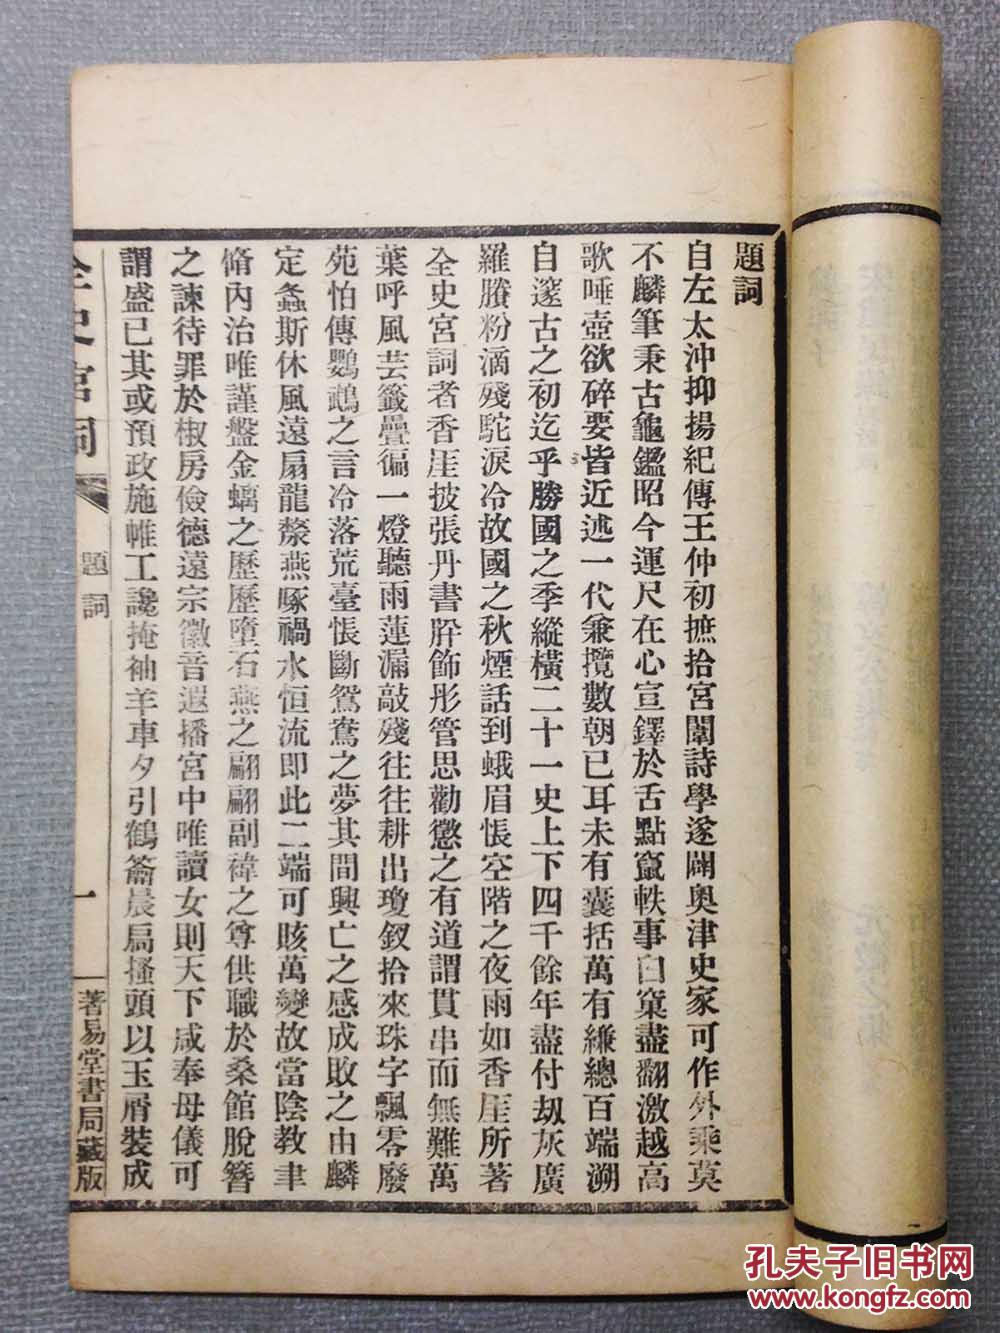 題詞
自左太沖抑揚紀傳王仲初摭拾宮闈詩學遂闢奧津史家可作外乘莫
不麟筆秉古龜鑑昭今運尺在心宣鐸於舌點竄軼事臼窠盡翻激越高
歌唾壺欲碎要皆近述一代兼攬數朝已耳未有囊括萬有縑總百端溯
自邃古之初迄乎勝國之季縱橫二十一史上下四千餘年盡付劫灰廣
羅賸粉滴殘駝淚冷故國之秋煙話到蛾眉悵空階之夜雨如香厓所著
全史宮詞者香厓披張丹書腁飾彤管思勸懲之有道謂貫串而無難萬
葉呼風芸籤疊徧一燈聽雨蓮漏敲殘往往耕出瓊釵拾來珠字飄零廢
苑怕傳鸚鵡之言冷落荒臺悵斷鴛鴦之夢其間興亡之感成敗之由麟
定螽斯休風遠扇龍漦燕啄禍水恒流即此二端可賅萬變故當陰教聿
脩內治唯謹盤金螭之歷歷墮石燕之翩翩副褘之尊供職於桑館脫簪
之諫待罪於椒房儉德遠宗徽音遐播宮中唯讀女則天下咸奉母儀可
謂盛已其或預政施帷工讒掩袖羊車夕引鶴籥晨扃搔頭以玉屑裝成
全史宮詞
題詞
一
著易堂書局藏版
孔夫子旧书网
www.kongfz.com